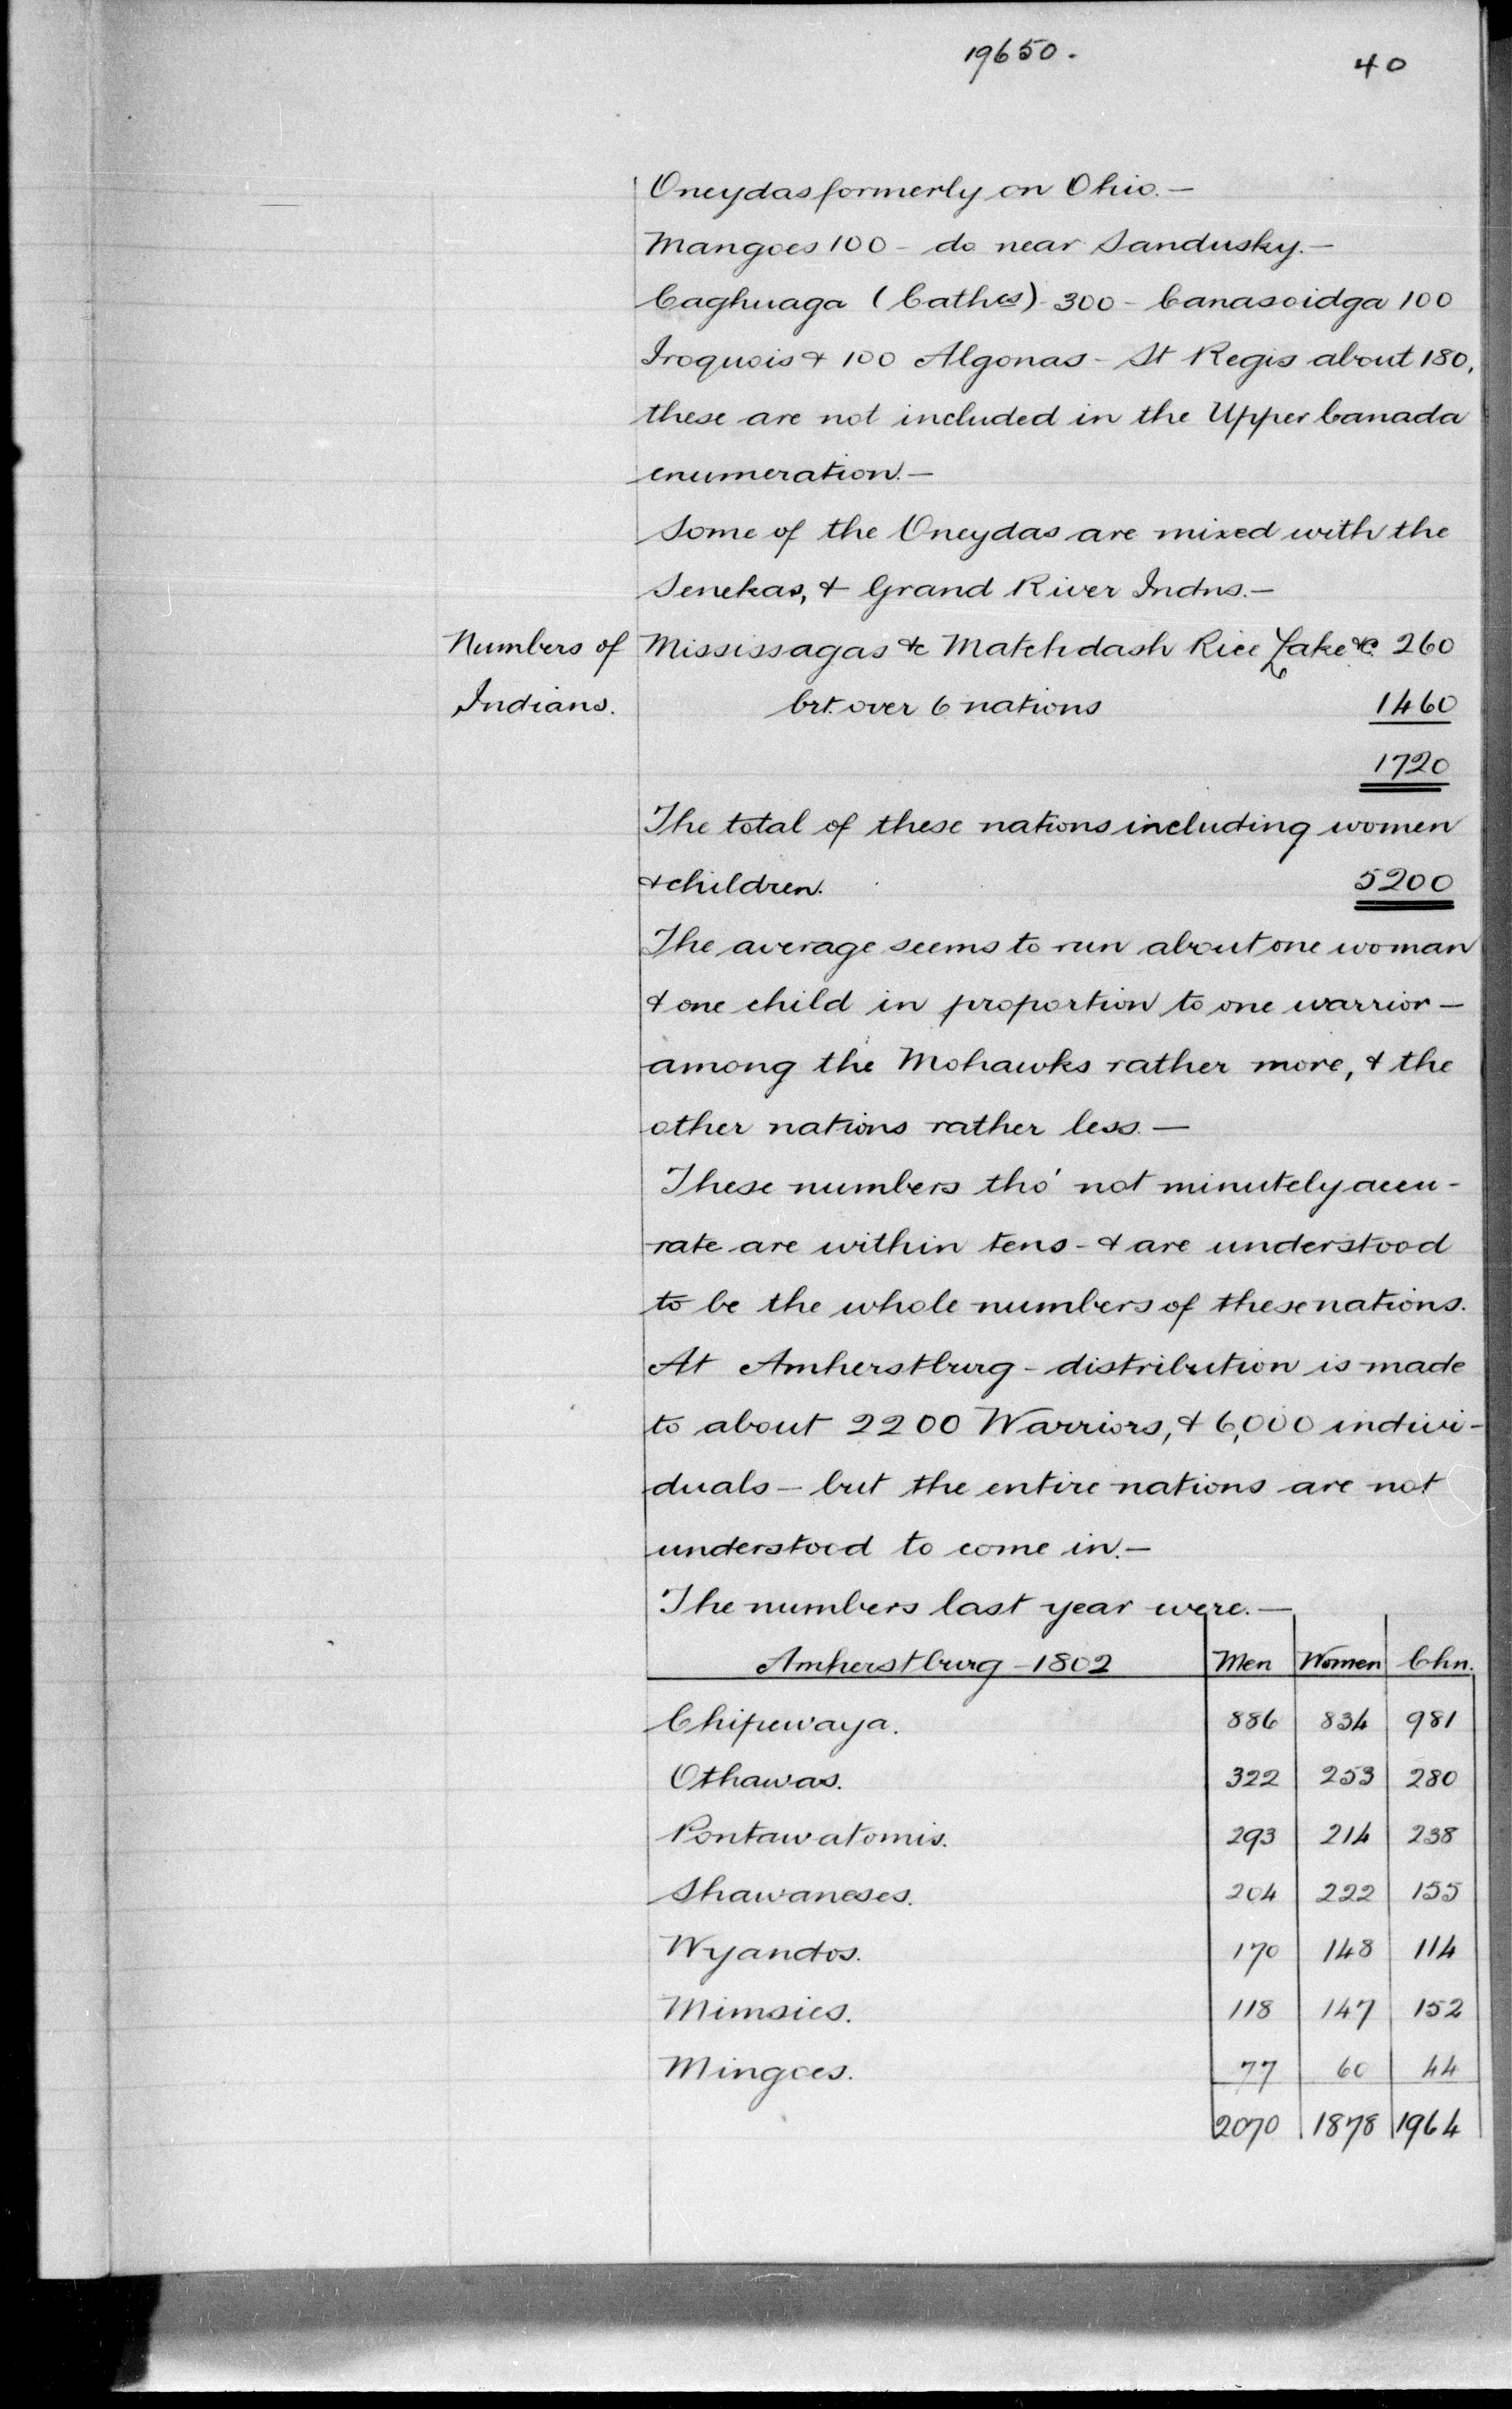 19650.
40
Oneydas formerly on Ohio.—
Mangoes 100 - do near Sandusky.—
Caghuaga (Cathes) 300 - Canasoidga 100
Iroquois & 100 Algonas - St Regis about 180,
these are not included in the Upper Canada
enumeration.—
Some of the Oneydas are mixed with the
Senekas, & Grand River Indns.—
Numbers of Indians.
Mississagas &c Matchdash Rice Lake &c. 260
brt. over 6 nations 1460
1720
The total of these nations including women
& children. 5200
The average seems to run about one woman
& one child in proportion to one warrior —
among the Mohawks rather more, & the
other nations rather less.—
These numbers tho' not minutely accu-
rate are within tens - & are understood
to be the whole numbers of these nations.
At Amherstburg - distribution is made
to about 2200 Warriors, & 6,000 indivi-
duals — but the entire nations are not
understood to come in.—
The numbers last year were.—
Amherstburg - 1802 Men Women Chn.
Chipewaya. 886 834 981
Othawas. 322 253 280
Pontawatomis. 293 214 238
Shawaneses. 204 222 155
Wyandos. 170 148 114
Mimsies. 118 147 152
Mingoes. 77 60 44
2070 1878 1964